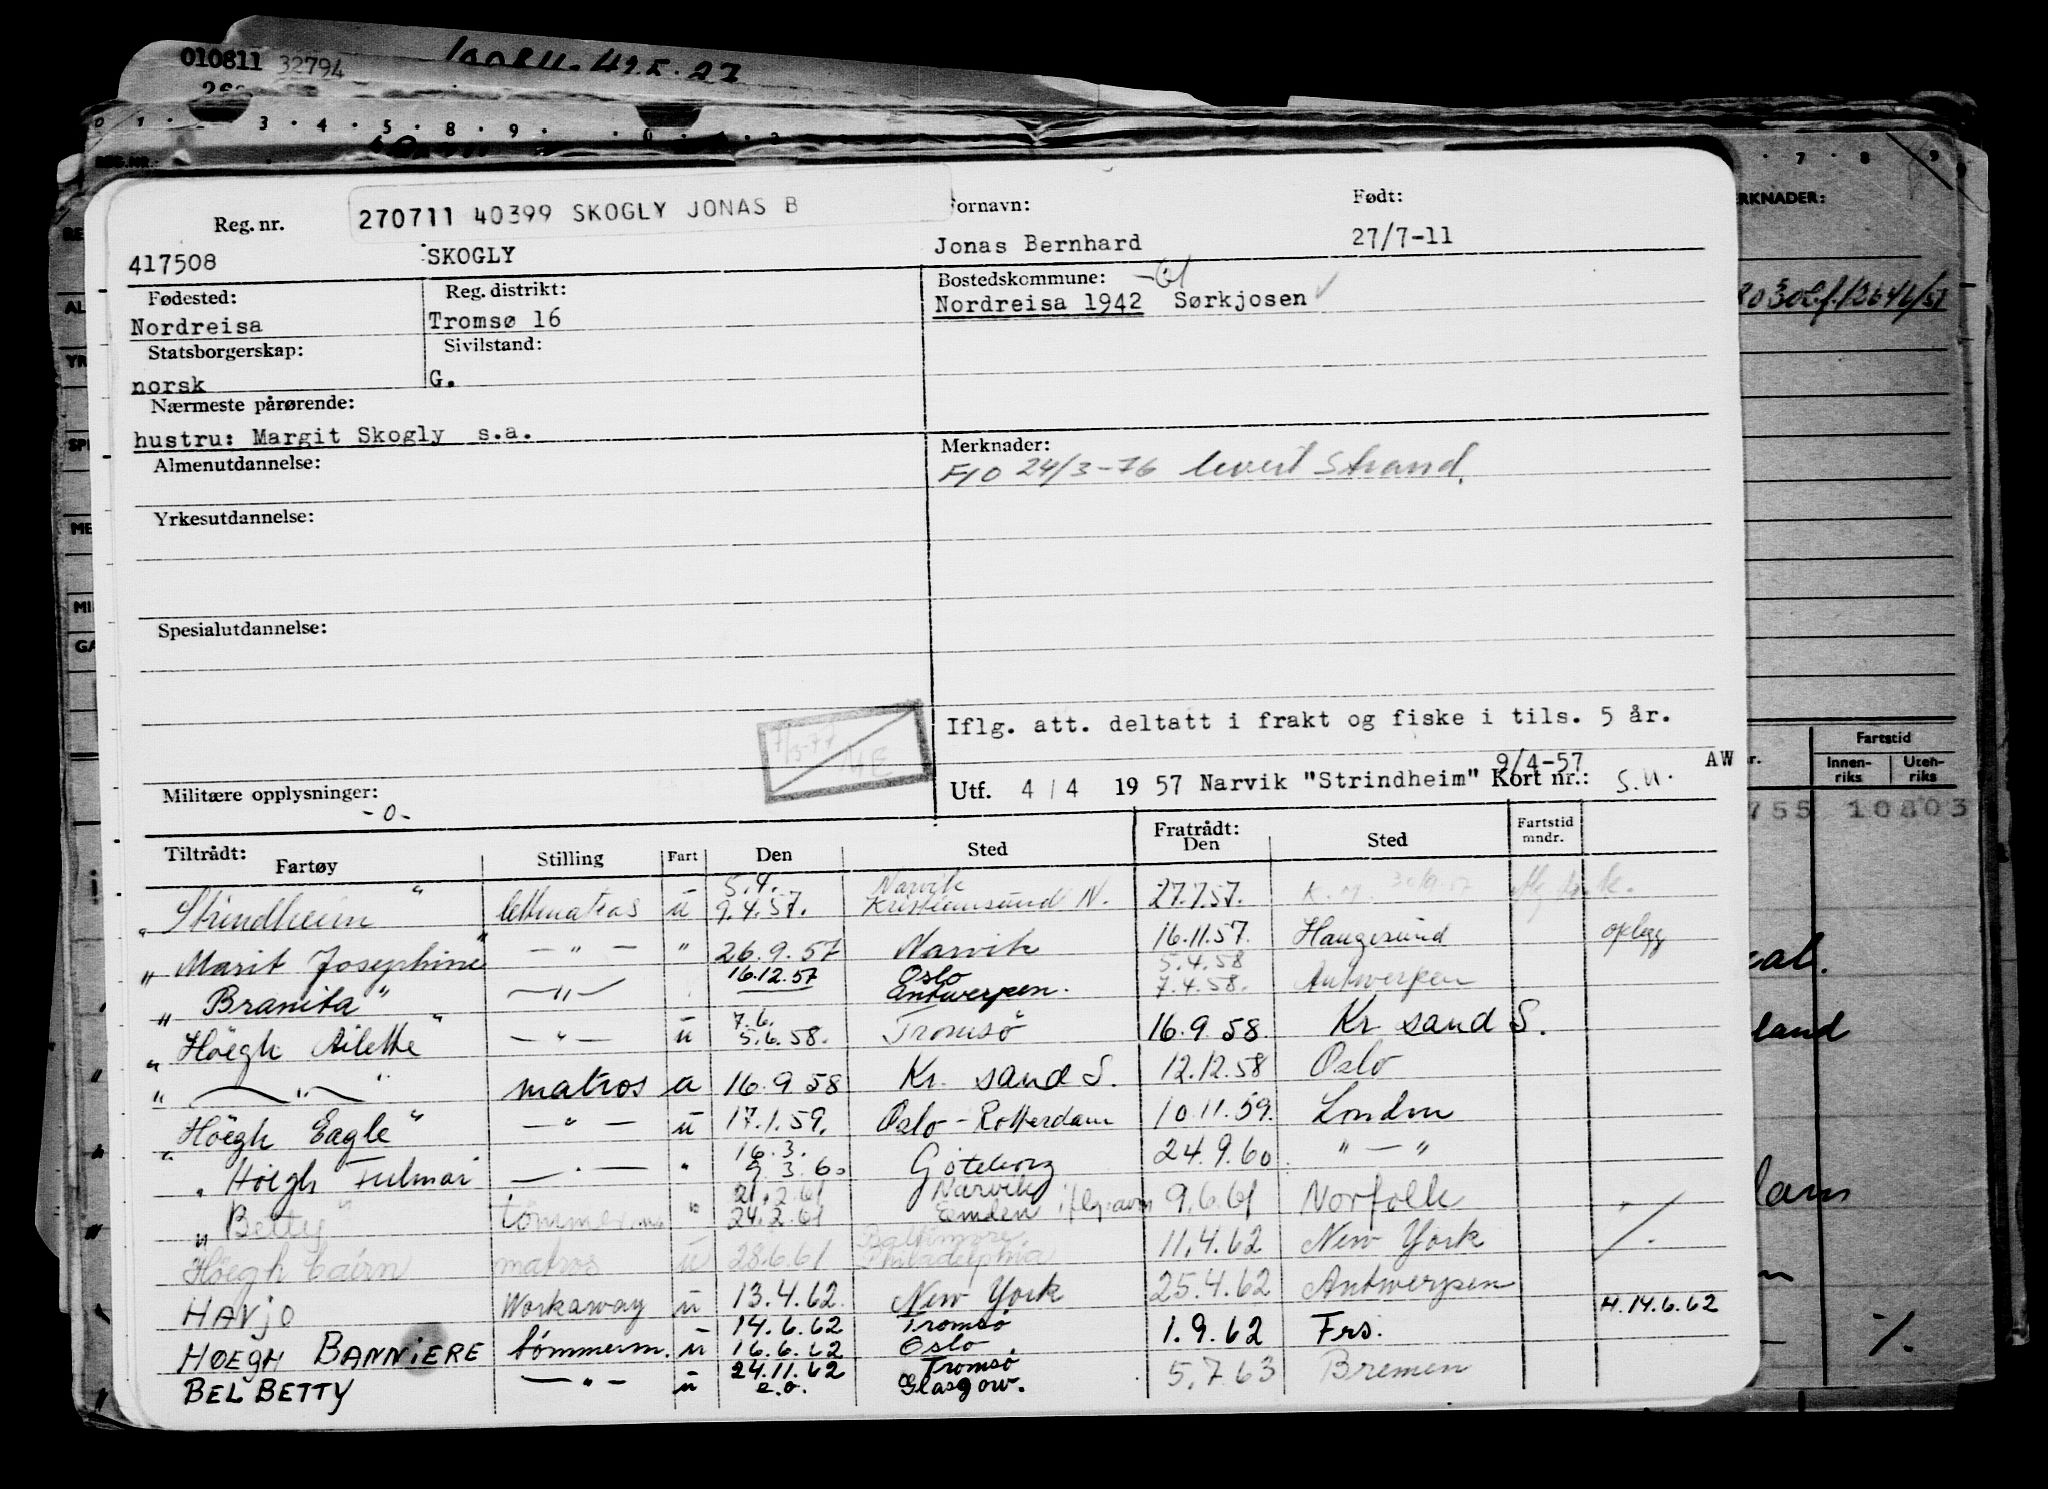 010811 32794
REG.NR.
3 . 4 . 5 . 8 . 9 .
7 . 8 . 9
MERKNADER:
270711 40399 SKOGLY JONAS B
Reg. nr. Fornavn: Født:
417508 SKOGLY Jonas Bernhard 27/7-11
Fødested: Reg. distrikt: Bostedskommune: -61
Nordreisa Tromsø 16 Nordreisa 1942 Sørkjosen
Statsborgerskap: Sivilstand:
norsk G.
Nærmeste pårørende:
hustru: Margit Skogly s.a.
Almenutdannelse: Merknader:
F/O 24/3-76 levert Strand.
Yrkesutdannelse:
Spesialutdannelse:
Iflg. att. deltatt i frakt og fiske i tils. 5 år.
9/4-57 AW
Militære opplysninger: Utf. 4 / 4 19 57 Narvik "Strindheim" Kort nr.: S.U.
-o-
Fartstid
Innen-riks Uten-riks
755 10803
Tiltrådt: Fartøy Stilling Fart Den Sted Fratrådt: Den Sted Fartstid mndr.
5.4. Narvik
"Strindheim" lettmatros u 9.4.57. Kristiansund N. 27.7.57.
"Marit Josephine" — " — " 26.9.57 Narvik 16.11.57. Haugesund opplegg
16.12.57 Oslo 5.4.58
"Branita" — " — Antwerpen. 7.4.58. Antwerpen
7.6.
"Höegh Ailette" — " — u 5.6.58. Tromsø 16.9.58. Kr sand S.
" — " — " matros u 16.9.58 Kr. sand S. 12.12.58 Oslo
"Höegh Eagle" — " — u 17.1.59. Oslo - Rotterdam 10.11.59. London
16.3.
"Höegh Fulmar — " — " 9.3.60 Göteborg 24.9.60. " — "
21.2.61 Narvik
"Betty" tømmerm. " 24.2.61 Emden iflg. avm 9.6.61 Norfolk
Baltimore
Höegh Cairn matros u 28.6.61 Philadelphia 11.4.62 New York
HAVJO Workaway u 13.4.62. New York 25.4.62 Antwerpen
14.6.62 Tromsø H. 14.6.62
HØEGH BANNIERE tømmerm. u 16.6.62 Oslo 1.9.62 Frs.
24.11.62 Tromsø
BEL BETTY — " — u e.o. Glasgow. 5.7.63 Bremen